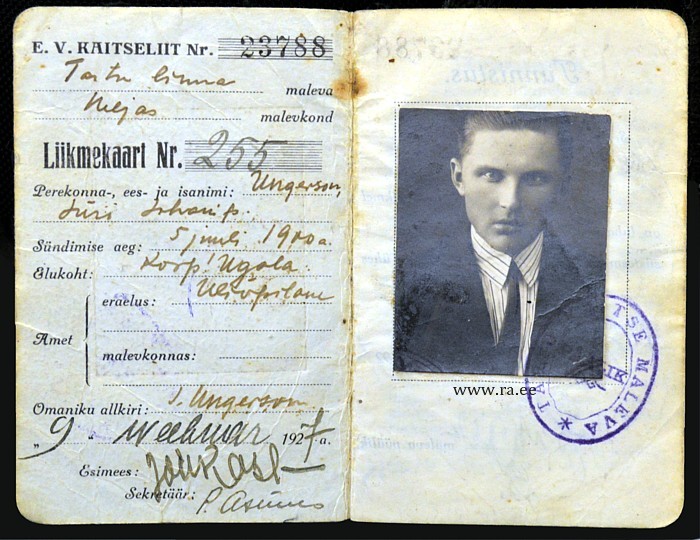 E. V. KAITSELIIT Nr. 23788
Tartu linna maleva
Neljas malevkond
Liikmekaart Nr. 255
Perekonna-, ees- ja isanimi: Ungerson,
Jüri Johani p.
Sündimise aeg: 5 juuli 1900 a.
Elukoht: Korp! Ugala
eraelus: Üliõpilane
Amet
malevkonnas:
Omaniku allkiri: J. Ungerson
„9 " veebruar 1927 a.
Esimees:
Sekretäär:
www.ra.ee
TSE MALEVA * TA